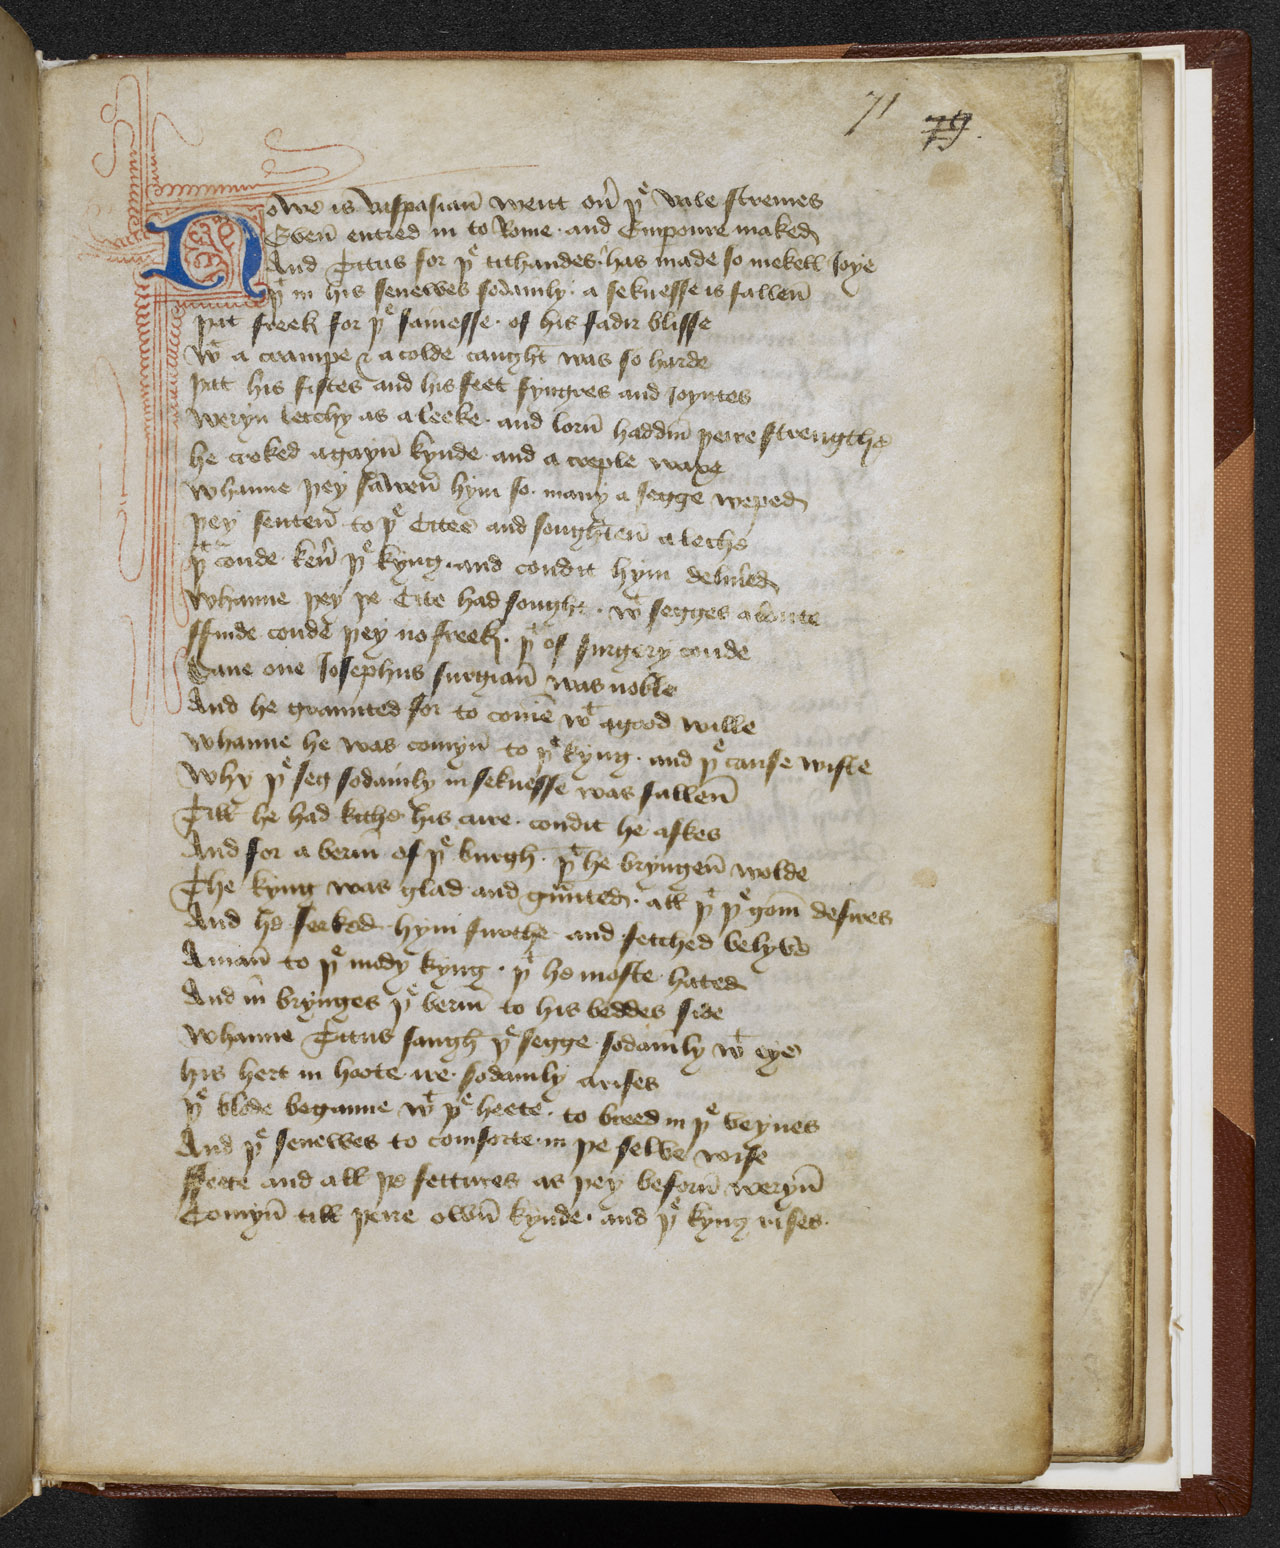 71 79.
Nowe is Vaspasiañ went oũ þͤ Wale stremes
Eveñ entred in to Rome · and Emperoure maked
And Titus for þͤ tithandes · has made so mekell Joye
þͭ in his senewes sodainly · a seknesse is falleñ
þat freek for þͤ fainesse · of his fadir blisse
wͭ a crampe & a colde caught was so harde
þat his fistes and his feet fyngres and Joyntes
weryn letchy as a leeke · and lorñ haddiñ þeire strengthe
he croked agayñ kynde · and a creple waxe
whanne þey saweñ hym so · many a segge weped
þey senteñ to þͤ Citee and soughteñ a leche
þͭ coude keũ þͤ kyng · and condit hym deliũed
whanne þey þe Cite had sought · wͭ segges aboute
ffinde coude þey no freek · þͭ of surgery coude
Sane one Josephus surgiañ was noble
And he graunted for to come wͭ a good wille
whanne he was comyñ to þͤ kyng · and þͤ cause wiste
why þͤ seg sodainly in seknesse was falleñ
Till he had kithe his cure · condit he askes
And for a bern of þͤ burgh · þͭ he bryngeñ wolde
The kyng was glad and gũnted · all þͭ þͤ gom̃ desires
And he seeked hym furthe and fetched belyve
A mañ to þͤ mody kyng · þͭ he moste hated
And iñ brynges þͤ berñ to his beddes side
whanne Titus saugh þͤ segge sodainly wͭ eye
his hert in hoote ire · sodainly arises
þͤ blode beganne wͭ þͤ heete · to breed in þͤ veynes
And þͤ senewes to comforte · in þe selve wise
ffeete and all þe fettures as þey beforñ weryñ
Comyñ till þeire owñ kynde · and þͤ kyng rises ·